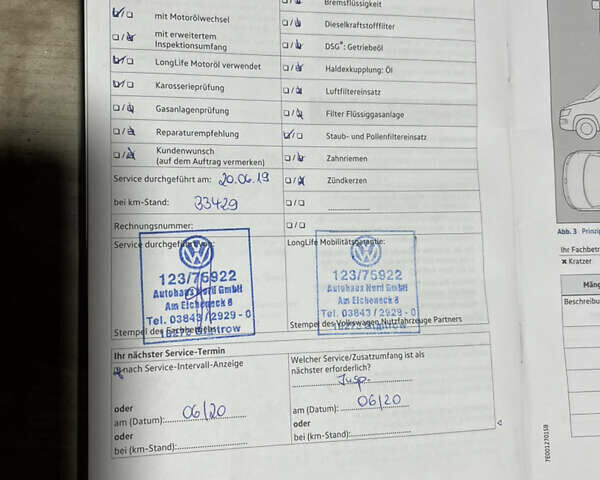 Bremsflüssigkeit
mit Motorölwechsel
Dieselkraftstofffilter
mit erweitertem
Inspektionsumfang
DSG®: Getriebeöl
LongLife Motoröl verwendet
Haldexkupplung: Öl
Karosserieprüfung
Luftfiltereinsatz
Gasanlagenprüfung
Filter Flüssiggasanlage
Reparaturempfehlung
Staub- und Pollenfiltereinsatz
Kundenwunsch
(auf dem Auftrag vermerken)
Zahnriemen
Service durchgeführt am: 20.06.19
Zündkerzen
bei km-Stand: 33429
Rechnungsnummer:
Service durchgeführt von:
LongLife Mobilitätsgarantie:
123/75922
Autohaus Nord GmbH
Am Eicheneck 8
Tel. 03843 / 2929 - 0
18273 Güstrow
Stempel des Fachbetriebs
123/75922
Autohaus Nord GmbH
Am Eicheneck 8
Tel. 03843 / 2929 - 0
18273 Güstrow
Stempel des Volkswagen Nutzfahrzeuge Partners
Ihr nächster Service-Termin
nach Service-Intervall-Anzeige
oder
am (Datum): 06/20
oder
bei (km-Stand):
Welcher Service/Zusatzumfang ist als
nächster erforderlich?
Insp.
am (Datum): 06/20
oder
bei (km-Stand):
7E0012701SB
Abb. 3 Prinzip
Ihr Fachbetr
× Kratzer
Mäng
Beschreibu